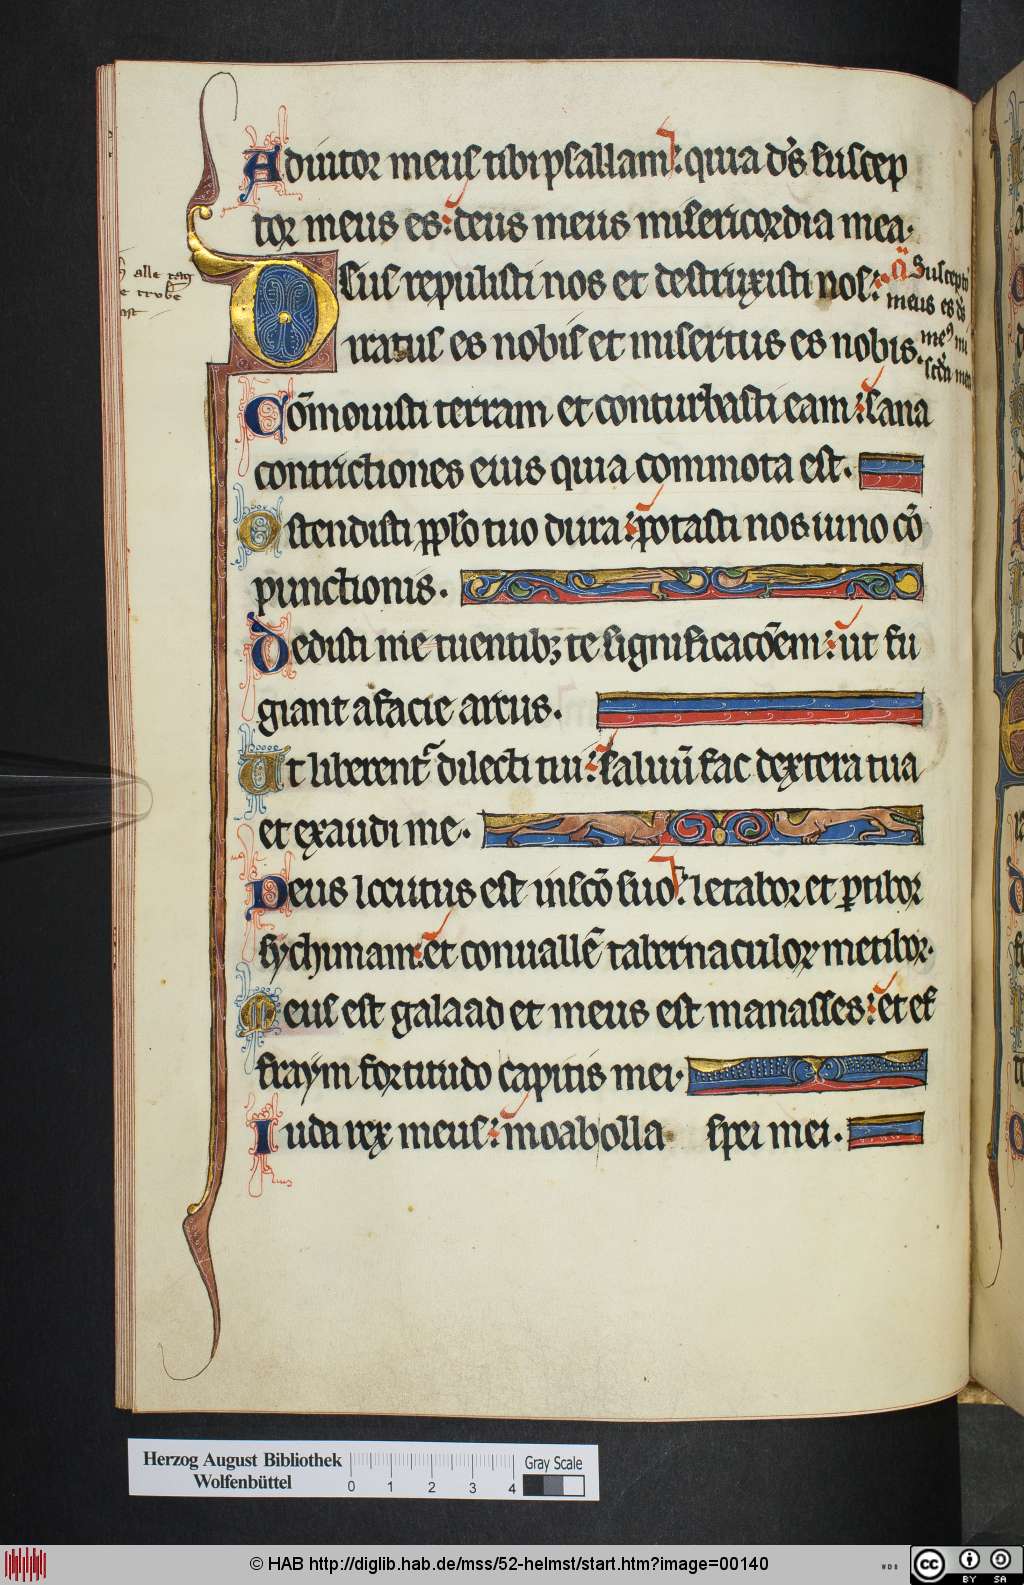 Adiutor meus tibi psallam: quia d̄s suscep
tor meus es: deus meus misericordia mea.
Dsus repulisti nos et destruxisti nos:
iratus es nobis et misertus es nobis.
Cōmouisti terram et conturbasti eam: sana
contrictiones eius quia commota est.
Ostendisti pplo tuo dura: potasti nos uino cō
punctionis.
Dedisti metuentibꝫ te significacōem: ut fu
giant a facie arcus.
Ut liberent᷑ dilecti tui: saluū fac dextera tua
et exaudi me.
Deus locutus est in scō suo: letabor et ꝑtibor
sychimam: et conuallē tabernaculoꝝ metibor.
Meus est galaad et meus est manasses: et ef
fraym fortitudo capitis mei.
Iuda rex meus: moab olla spei mei.
Susceptor
meus es d̄s
meꝰ mi
alle
Herzog August Bibliothek
Wolfenbüttel
0 1 2 3 4
Gray Scale
© HAB http://diglib.hab.de/mss/52-helmst/start.htm?image=00140
WDB
CC BY SA